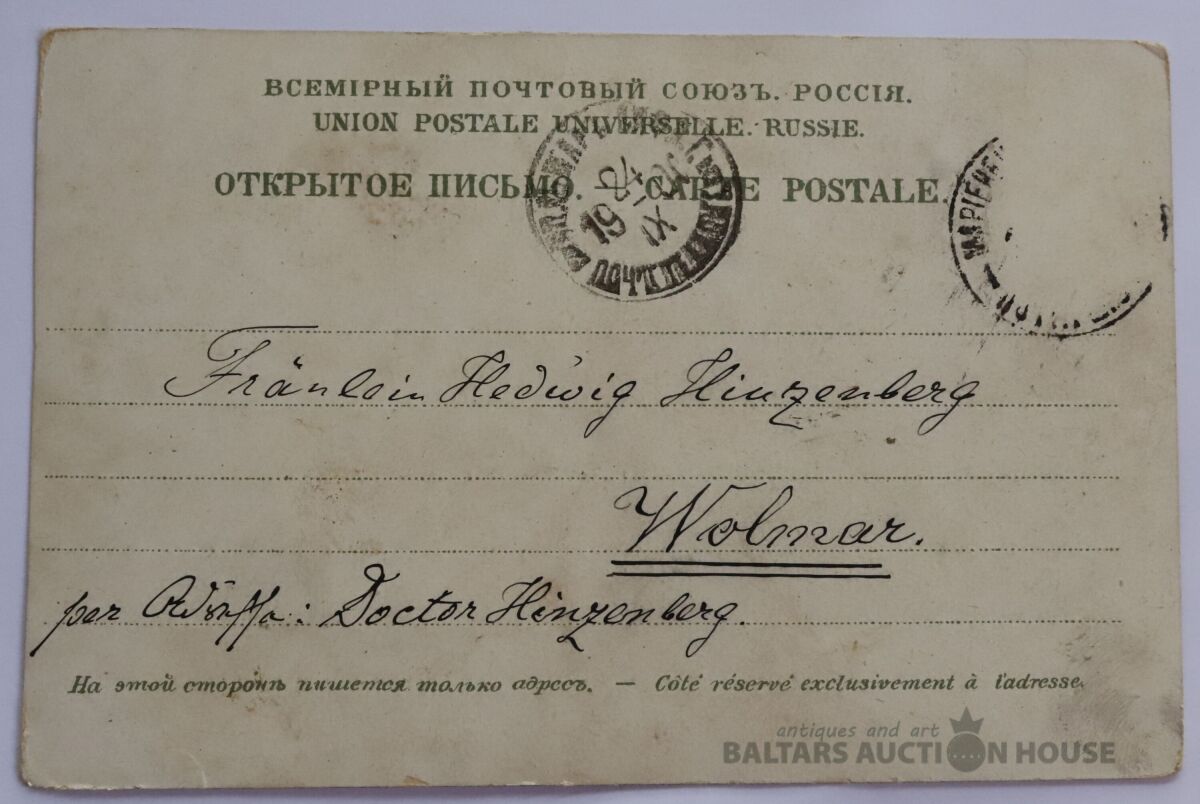 ВСЕМІРНЫЙ ПОЧТОВЫЙ СОЮЗЪ. РОССІЯ.
UNION POSTALE UNIVERSELLE. RUSSIE.
ОТКРЫТОЕ ПИСЬМО. — CARTE POSTALE.
24
19
IX
Fräulein Hedwig Hinzenberg
Wolmar.
per Adresse: Doctor Hinzenberg.
На этой сторонѣ пишется только адресъ. — Côté réservé exclusivement à l'adresse.
antiques and art
BALTARS AUCTION HOUSE